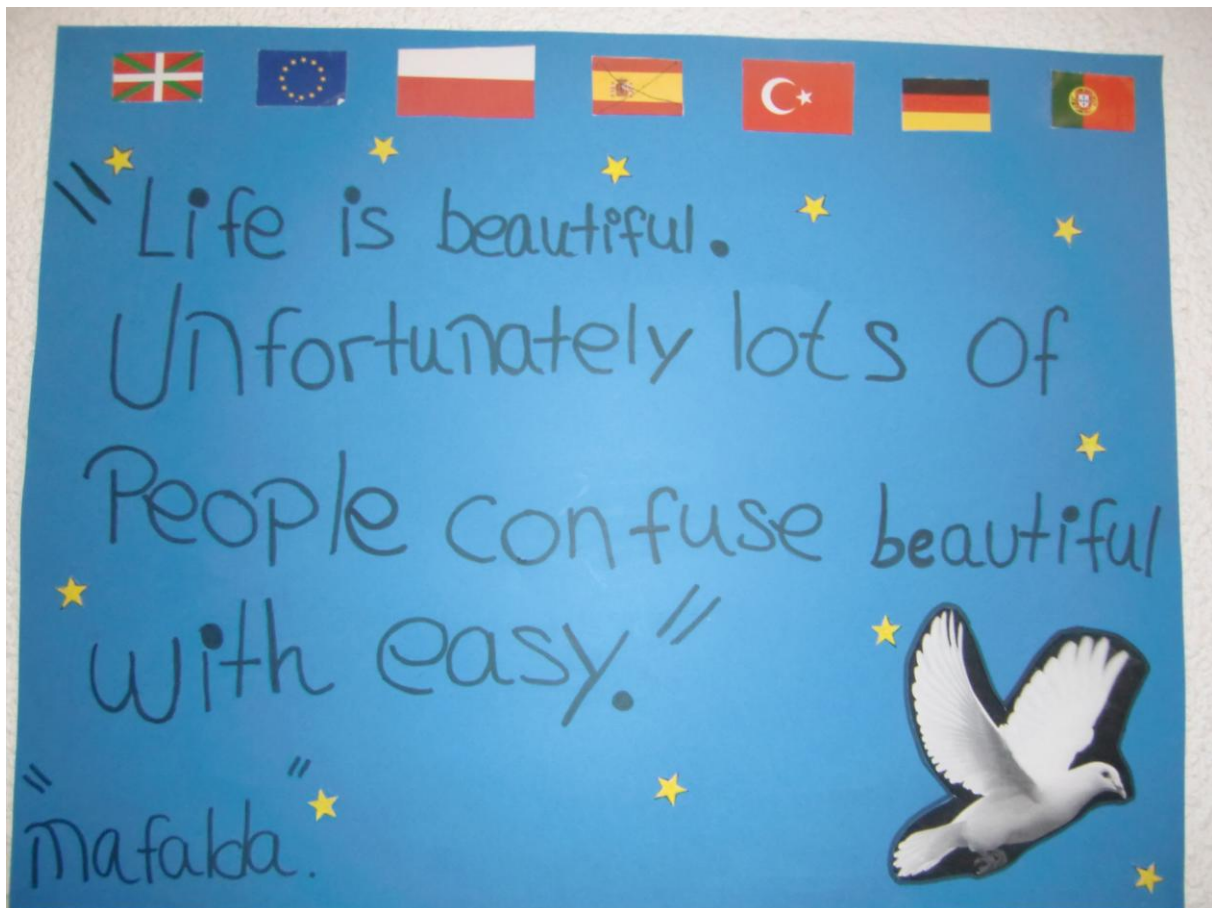 "Life is beautiful.
Unfortunately lots of
People confuse beautiful
with easy."
"mafalda".